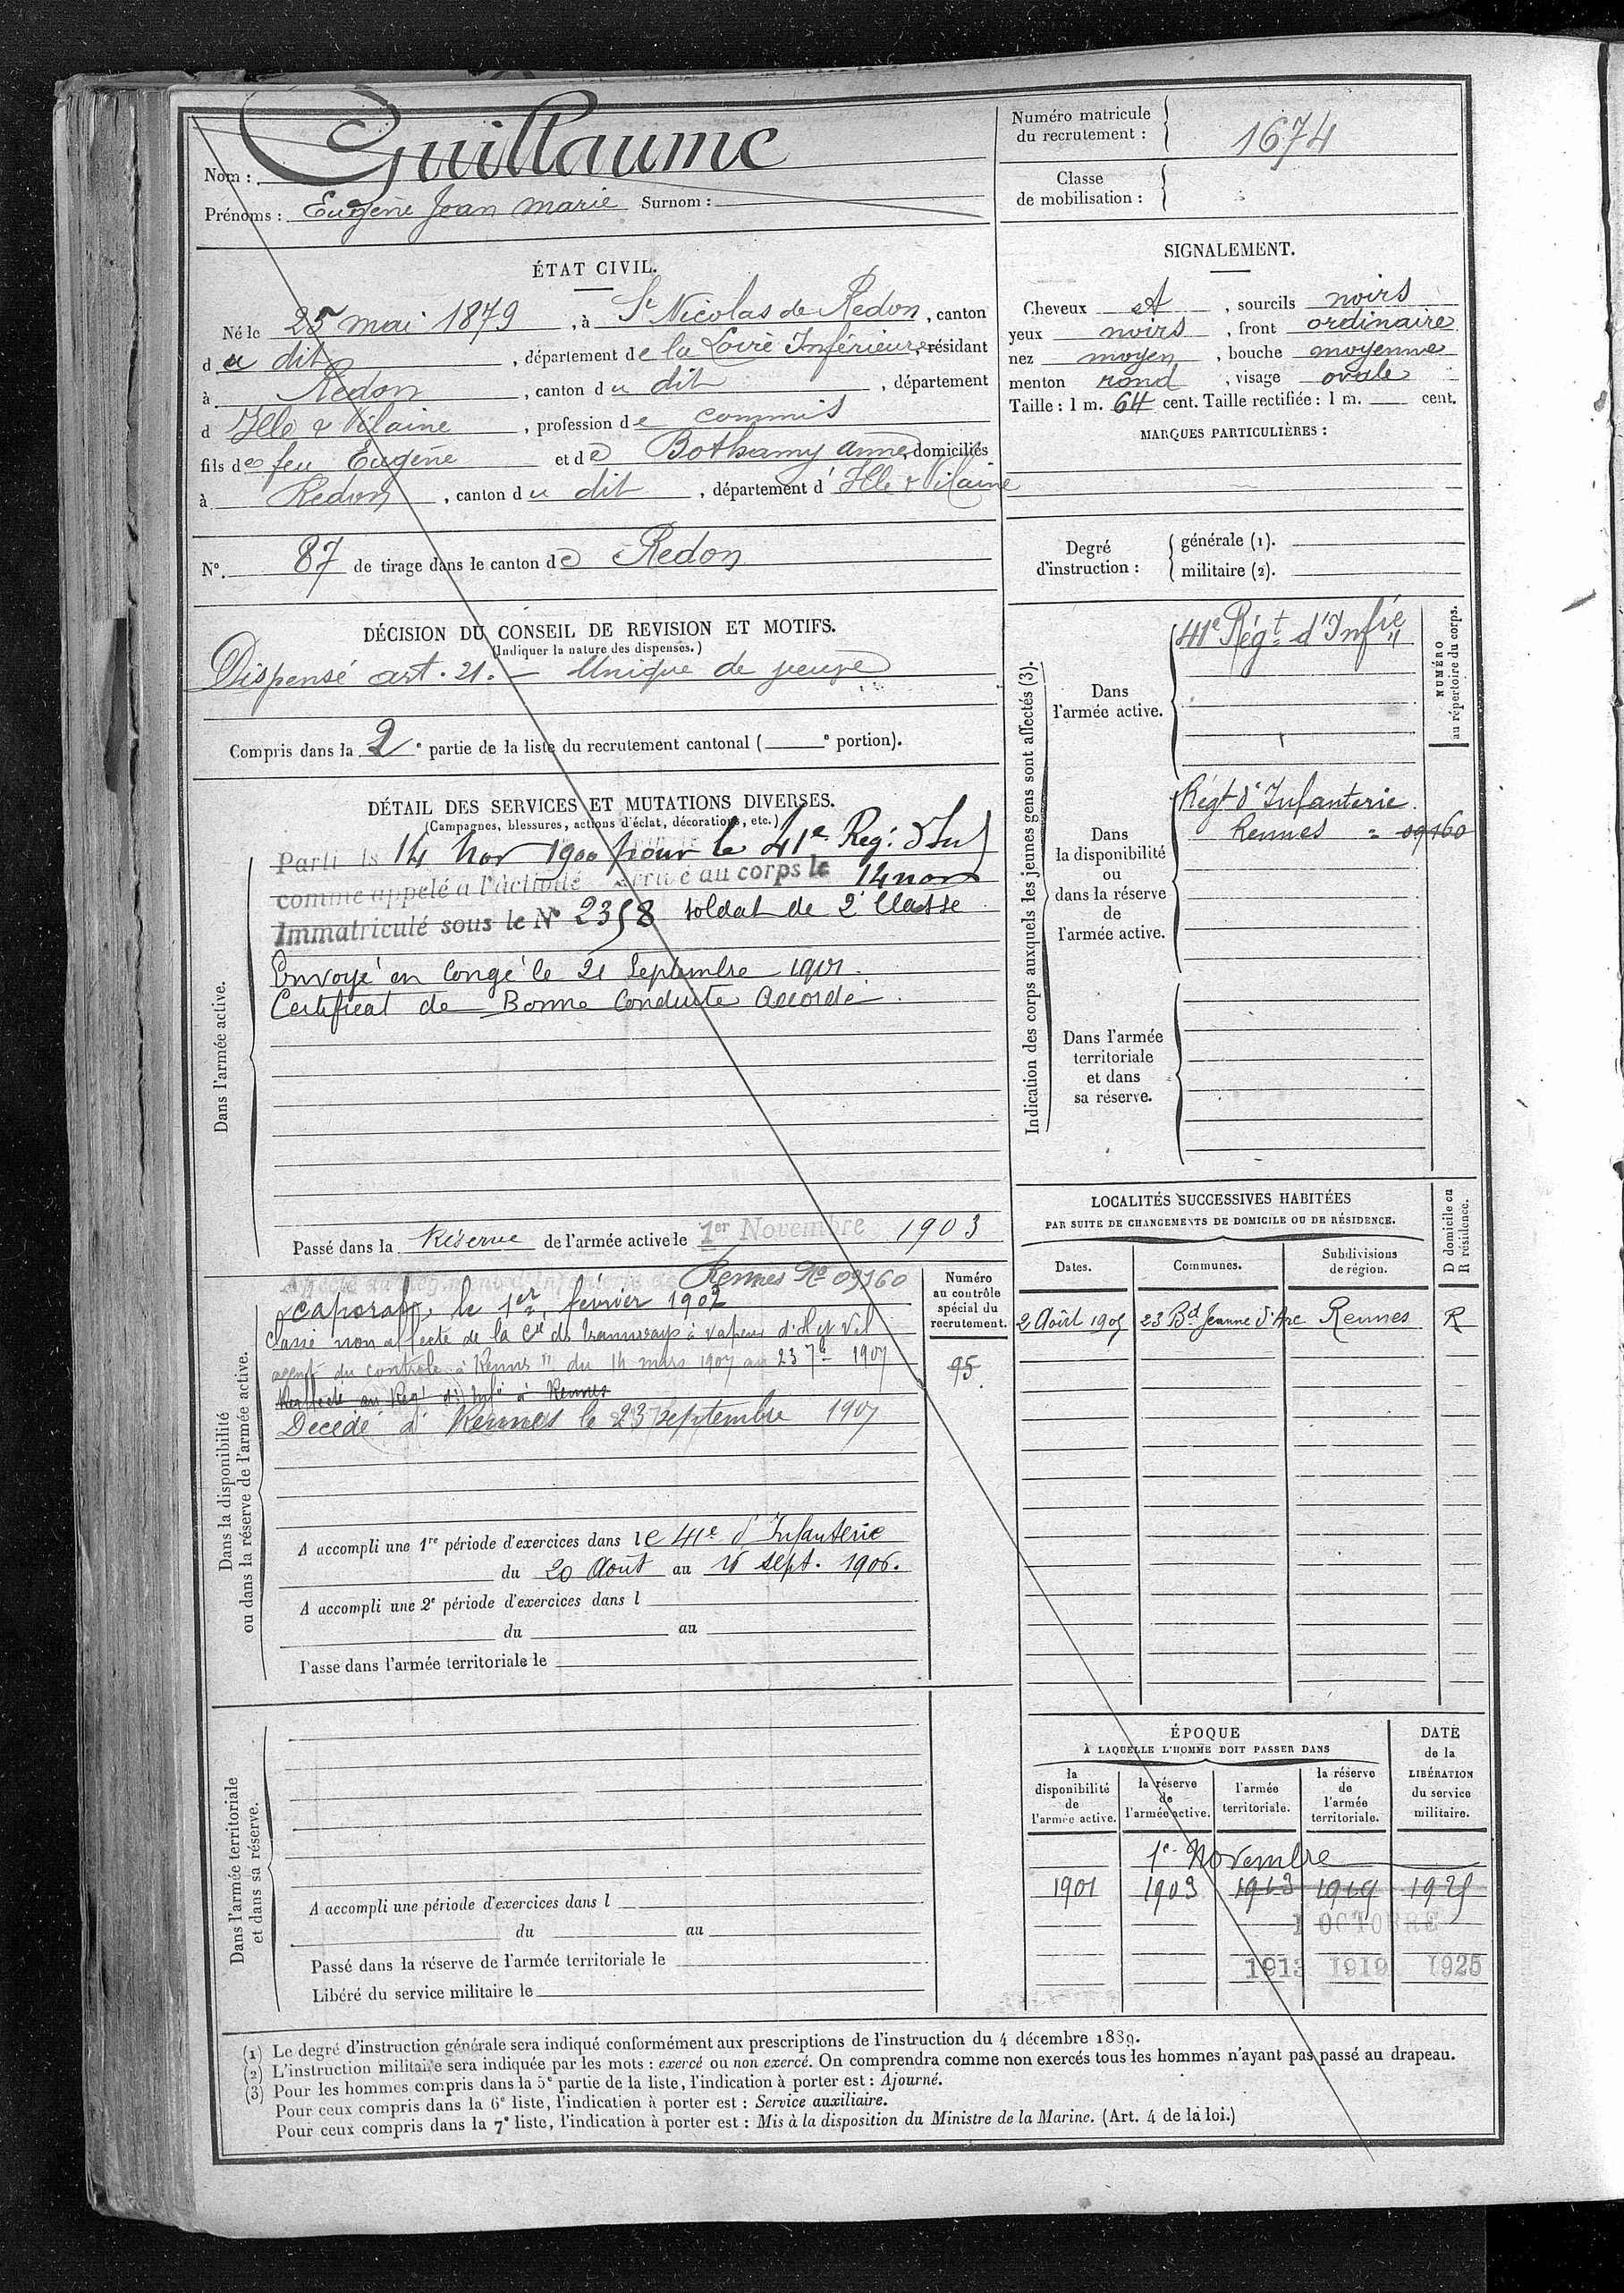 Nom : Guillaume
Prénoms : Eugène Jean Marie Surnom :
Numéro matricule du recrutement : 1674
Classe de mobilisation :
ÉTAT CIVIL.
Né le 25 mai 1879, à St Nicolas de Redon, canton
du dit, département de la Loire Inférieure, résidant
à Redon, canton du dit, département
d Ille & Vilaine, profession de commis
fils de feu Eugène et de Bothamy Anne, domiciliés
à Redon, canton du dit, département d' Ille & Vilaine
N°. 87 de tirage dans le canton de Redon
DÉCISION DU CONSEIL DE REVISION ET MOTIFS.
(Indiquer la nature des dispenses.)
Dispensé art. 21. - Unique de veuve
Compris dans la 2e partie de la liste du recrutement cantonal ( e portion).
DÉTAIL DES SERVICES ET MUTATIONS DIVERSES.
(Campagnes, blessures, actions d'éclat, décorations, etc.)
Dans l'armée active.
Parti le 14 Nov 1900 pour le 41e Reg. d'Inf
comme appelé à l'activité Arrivé au corps le 14 nov
Immatriculé sous le N° 2358 soldat de 2e Classe
Envoyé en Congé le 21 Septembre 1901.
Certificat de Bonne Conduite Accordé.
Passé dans la Réserve de l'armée active le 1er Novembre 1903
Dans la disponibilité
ou dans la réserve de l'armée active.
Numéro
au contrôle
spécial du
recrutement.
95
Affecté au Régiment d'Infanterie de Rennes No 09160
caporal le 1er février 1902
Classé non affecté de la Cie des tramways à vapeur d'Il et Vil
agent du contrôle à Rennes du 14 mars 1907 au 23 7bre 1907
Décédé à Rennes le 23 septembre 1907
A accompli une 1re période d'exercices dans le 41e d'Infanterie
du 20 Août au 16 sept. 1906.
A accompli une 2e période d'exercices dans l
du au
Passé dans l'armée territoriale le
Dans l'armée territoriale
et dans sa réserve.
A accompli une période d'exercices dans l
du au
Passé dans la réserve de l'armée territoriale le
Libéré du service militaire le
SIGNALEMENT.
Cheveux et, sourcils noirs
yeux noirs, front ordinaire
nez moyen, bouche moyenne
menton rond, visage ovale
Taille : 1 m. 64 cent. Taille rectifiée : 1 m. cent.
MARQUES PARTICULIÈRES :
Degré
d'instruction :
générale (1).
militaire (2).
Indication des corps auxquels les jeunes gens sont affectés (3).
NUMÉRO
au répertoire du corps.
Dans
l'armée active.
41e Régt d'Infrie
Dans
la disponibilité
ou
dans la réserve
de
l'armée active.
Régt d'Infanterie
Rennes = 09160
Dans l'armée
territoriale
et dans
sa réserve.
LOCALITÉS SUCCESSIVES HABITÉES
PAR SUITE DE CHANGEMENTS DE DOMICILE OU DE RÉSIDENCE.
Dates. Communes. Subdivisions de région. D domicile ou R résidence.
2 Août 1905 23 Bd Jeanne d'Arc Rennes R
ÉPOQUE
À LAQUELLE L'HOMME DOIT PASSER DANS
la disponibilité de l'armée active.
la réserve de l'armée active.
l'armée territoriale.
la réserve de l'armée territoriale.
DATE
de la
LIBÉRATION
du service
militaire.
1er Novembre
1901 1903 1913 1919 1925
1 OCTOBRE
1913 1919 1925
(1) Le degré d'instruction générale sera indiqué conformément aux prescriptions de l'instruction du 4 décembre 1889.
(2) L'instruction militaire sera indiquée par les mots : exercé ou non exercé. On comprendra comme non exercés tous les hommes n'ayant pas passé au drapeau.
(3) Pour les hommes compris dans la 5e partie de la liste, l'indication à porter est : Ajourné.
Pour ceux compris dans la 6e liste, l'indication à porter est : Service auxiliaire.
Pour ceux compris dans la 7e liste, l'indication à porter est : Mis à la disposition du Ministre de la Marine. (Art. 4 de la loi.)